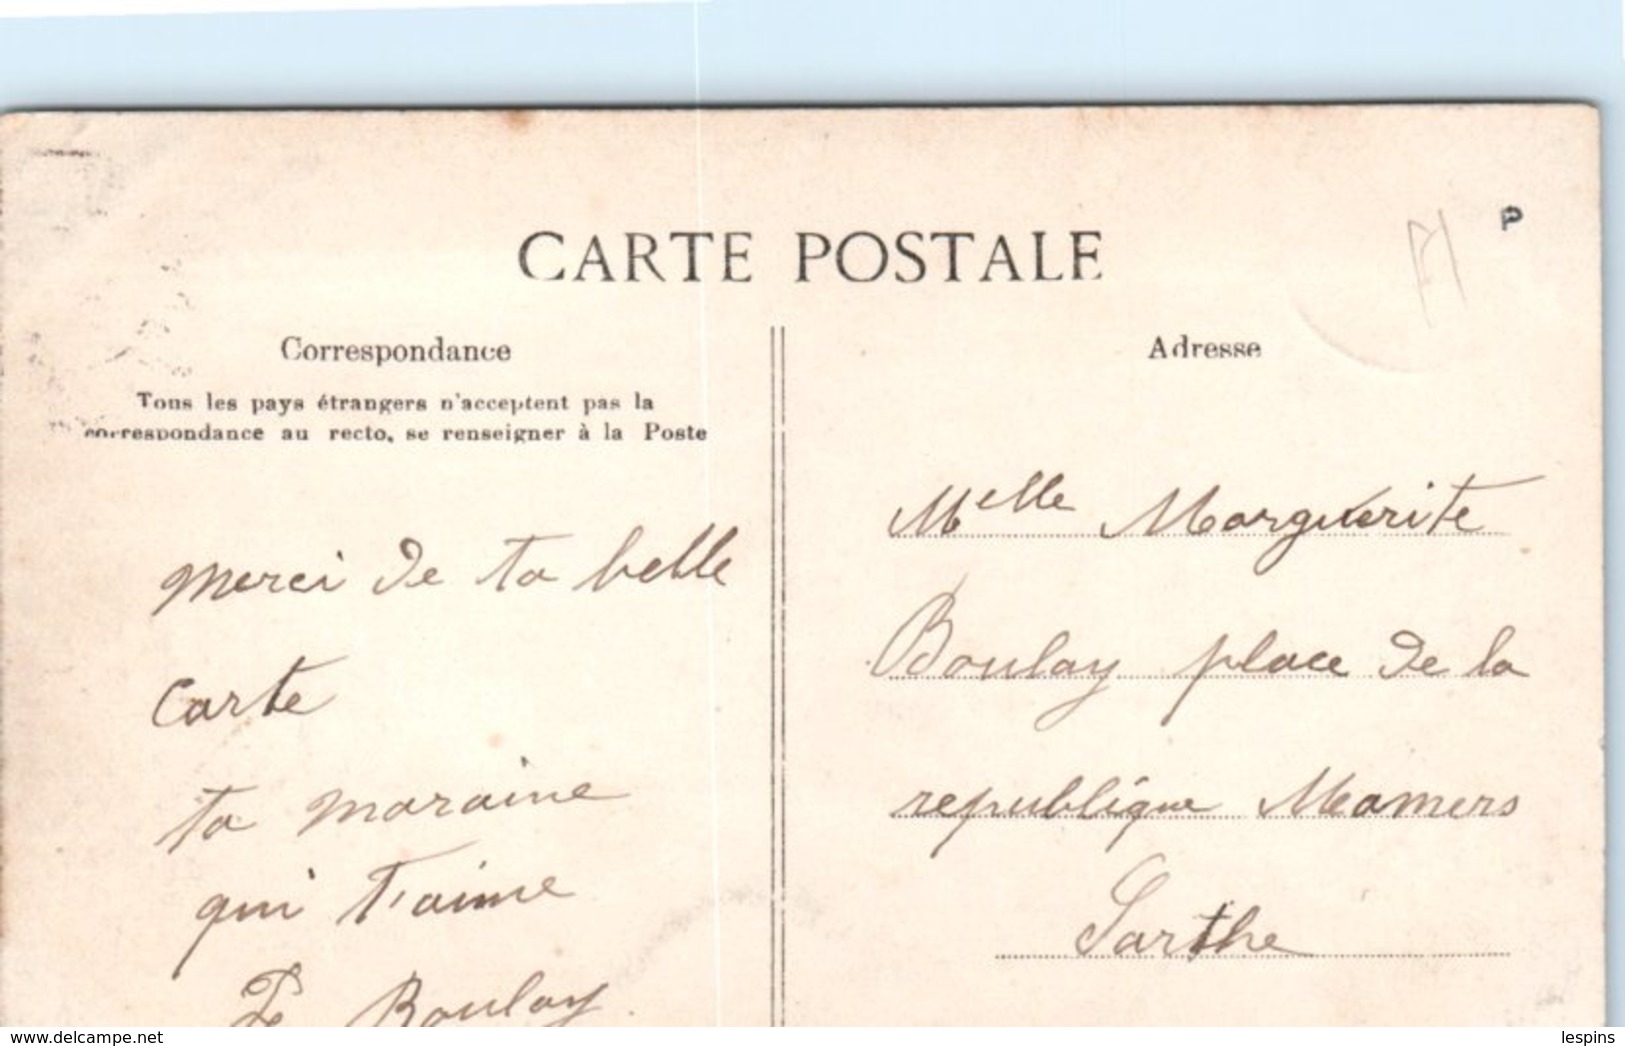 CARTE POSTALE
Correspondance
Tous les pays étrangers n'acceptent pas la
correspondance au recto, se renseigner à la Poste
merci de ta belle
carte
ta maraine
qui t'aime
Boulay
Adresse
P
Melle Marguerite
Boulay place de la
republique Mamers
Sarthe
delcampe.net
lespins